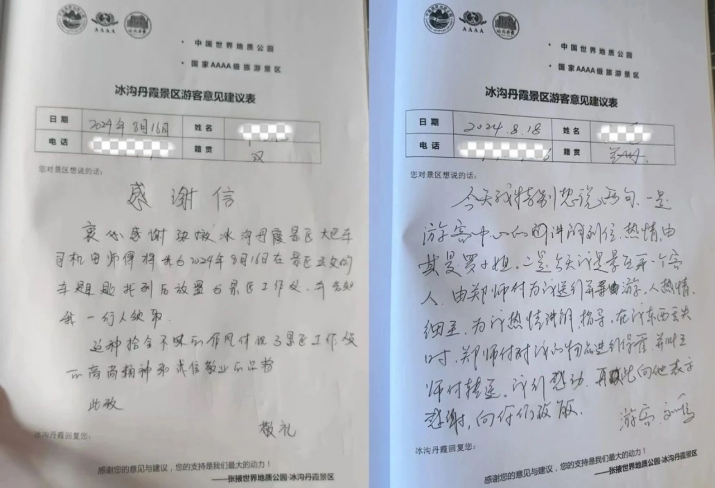 AAAA
• 中国世界地质公园
• 国家AAAA级旅游景区
冰沟丹霞景区游客意见建议表
日期 2024年8月16日 姓名
电话 籍贯 汉
您对景区想说的话:
感谢信
衷心感谢张掖冰沟丹霞景区大巴车
司机 师傅将我 2024年8月16日在景区丢失的
车 钥匙 找到后放置 景区工作处,并告知
我一行人 。
这种拾金不昧的作风体现了景区工作人员
的高尚精神和诚信敬业的品格
此致
敬礼
冰沟丹霞回复您:
感谢您的意见与建议,您的支持是我们最大的动力!
——张掖世界地质公园·冰沟丹霞景区
AAAA
• 中国世界地质公园
• 国家AAAA级旅游景区
冰沟丹霞景区游客意见建议表
日期 2024.8.18 姓名
电话 籍贯 兰州
您对景区想说的话:
今天我特别想说两句,一是
游客中心的 讲解 到位,热情 尤
其是罗小姐,二是今天 是 一个客
人,由郑师付为我 游,人热情,
细至,为我热情讲解,指导,在我东西丢失
时,郑师付对我的物品进行保管并
师付转至,我到感动,再 向他表示
感谢,向你们致敬。
游客 刘
冰沟丹霞回复您:
感谢您的意见与建议,您的支持是我们最大的动力!
——张掖世界地质公园·冰沟丹霞景区